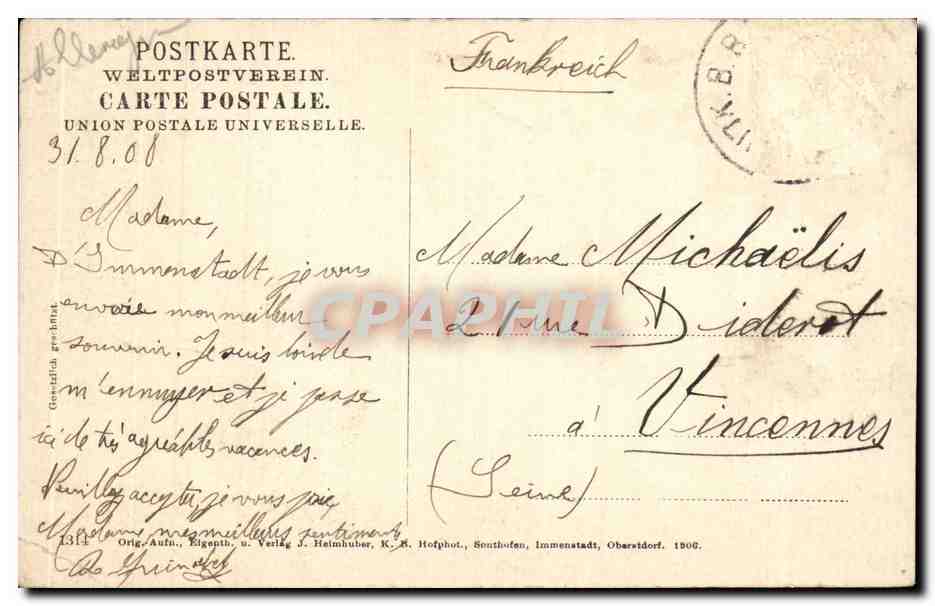 POSTKARTE.
WELTPOSTVEREIN.
CARTE POSTALE.
UNION POSTALE UNIVERSELLE.
Frankreich
K.B.
31.8.08
Madame,
D'Immenstadt, je vous
envoie mon meilleur
souvenir. Je suis loin de
m'ennuyer et je passe
ici de très agréables vacances.
Veuillez accepter, je vous prie
Madame mes meilleurs sentiments
Madame Michaëlis
21 rue Diderot
à Vincennes
(Seine)
CPAPHIL
Gesetzlich geschützt.
1311 Orig. Aufn., Eigenth. u. Verlag J. Heimhuber, K. B. Hofphot., Sonthofen, Immenstadt, Oberstdorf. 1906.